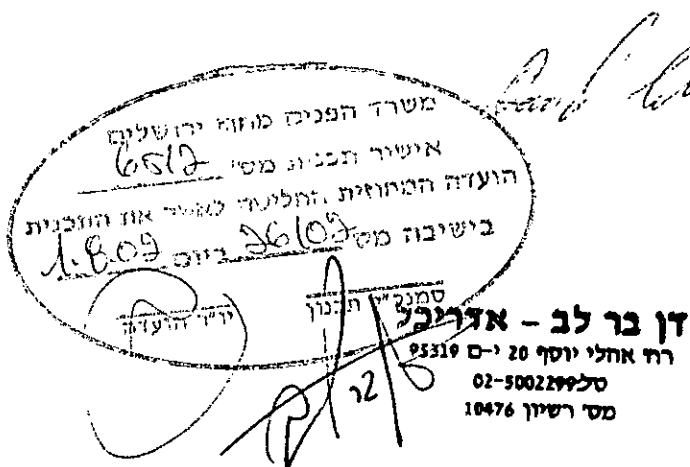 משרד הפנים מחוז ירושלים
אישור תכנית מס' 6512
הועדה המחוזית החליטה לאשר את התכנית
בישיבה מס' 26/02 ביום 1.8.02
סמנכ"ל תכנון
יו"ר הועדה
דן בר לב - אדריכל
רח' אהלי יוסף 20 י-ם 95319
טל. 02-5002299
מס' רשיון 10476